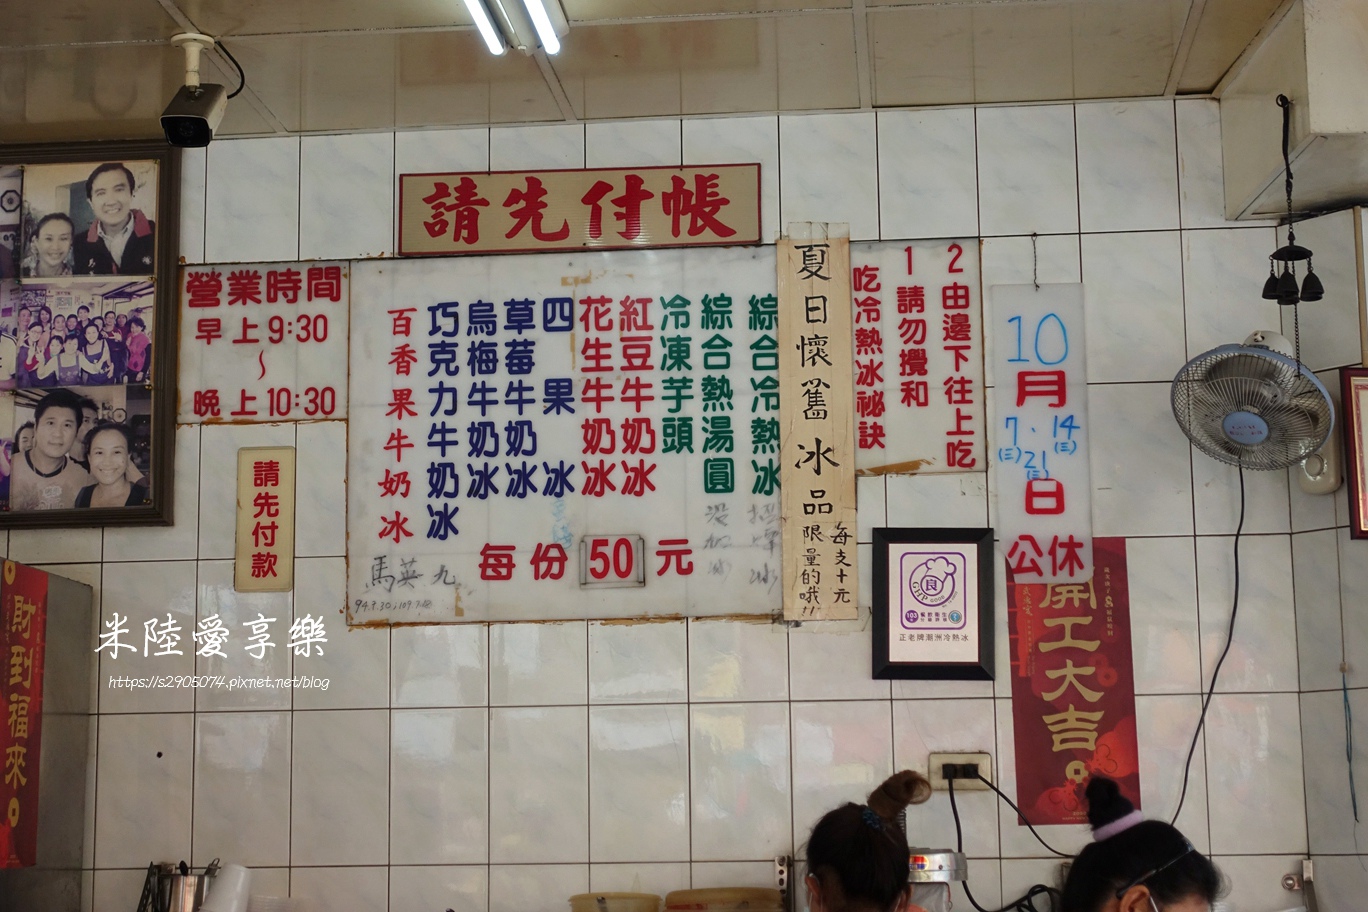 請先付帳
營業時間
早上9:30
～
晚上10:30
請先付款
綜合冷熱冰
綜合熱湯圓
冷凍芋頭
紅豆牛奶冰
花生牛奶冰
四果冰
草莓牛奶冰
烏梅牛奶冰
巧克力牛奶冰
百香果牛奶冰
每份50元
馬英九
夏日懷舊冰品
每支十元
限量的哦!!
吃冷熱冰祕訣
1請勿攪和
2由邊下往上吃
10月
7.14
(三)(三)
21
(三)
日
公休
GHP
良
正老牌潮洲冷熱冰
開工大吉
財到福來
米陸愛享樂
https://s2905074.pixnet.net/blog